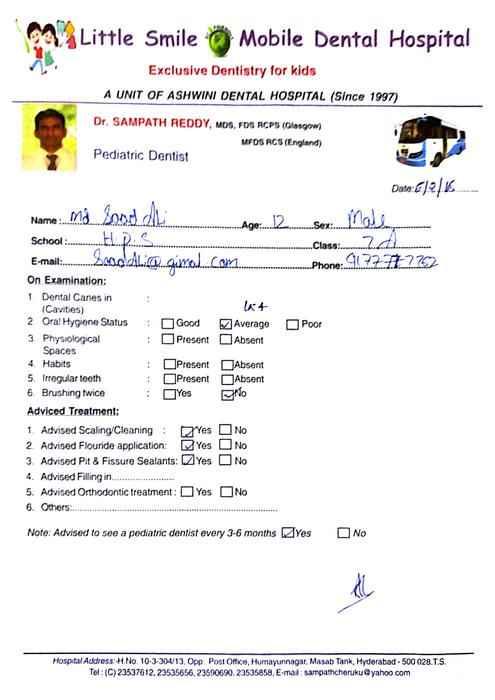 Little Smile Mobile Dental Hospital
Exclusive Dentistry for kids
A UNIT OF ASHWINI DENTAL HOSPITAL (Since 1997)
Dr. SAMPATH REDDY, MDS, FDS RCPS (Glasgow)
MFDS RCS (England)
Pediatric Dentist
Date: 6/2/16
Name: Md Saad Ali Age: 12 Sex: Male
School: H.P.S Class: 7 A
E-mail: SaadAli@gimal com Phone:
On Examination:
1 Dental Caries in :
(Cavities)
2. Oral Hygiene Status : Good Average Poor
3. Physiological : Present Absent
Spaces
4. Habits : Present Absent
5. Irregular teeth : Present Absent
6. Brushing twice : Yes No
Adviced Treatment:
1. Advised Scaling/Cleaning : Yes No
2. Advised Flouride application: Yes No
3. Advised Pit & Fissure Sealants: Yes No
4. Advised Filling in
5. Advised Orthodontic treatment : Yes No
6. Others:
Note: Advised to see a pediatric dentist every 3-6 months Yes No
Hospital Address:-H.No. 10-3-304/13, Opp. Post Office, Humayunnagar, Masab Tank, Hyderabad - 500 028.T.S.
Tel : (C) 23537612, 23535656, 23590690, 23535858, E-mail : sampathcheruku@yahoo.com